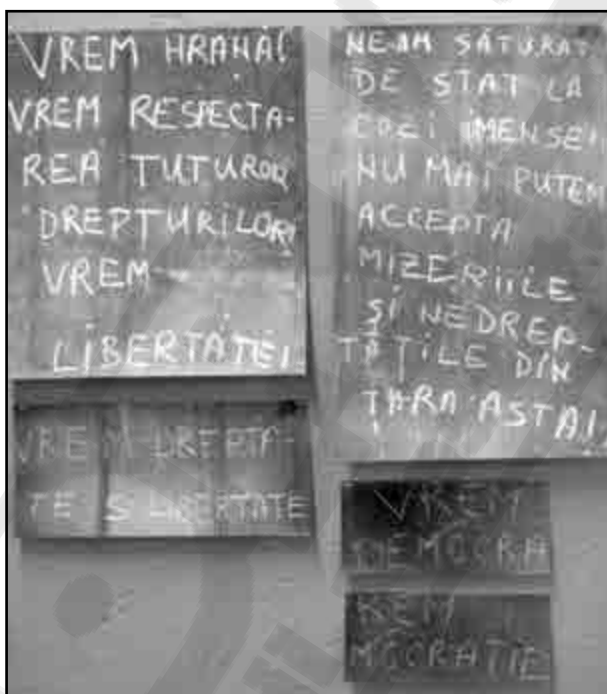 VREM HRANĂ!
VREM RESPECTA-
REA TUTUROR
DREPTURILOR!
VREM
LIBERTATE!
VREM DREPTA-
TE ȘI LIBERTATE
NE-AM SĂTURAT
DE STAT LA
COZI IMENSE!
NU MAI PUTEM
ACCEPTA
MIZERIILE
ȘI NEDREP-
TĂȚILE DIN
ȚARA ASTA!
VREM
DEMOCRA
REM
MOCRAȚIE